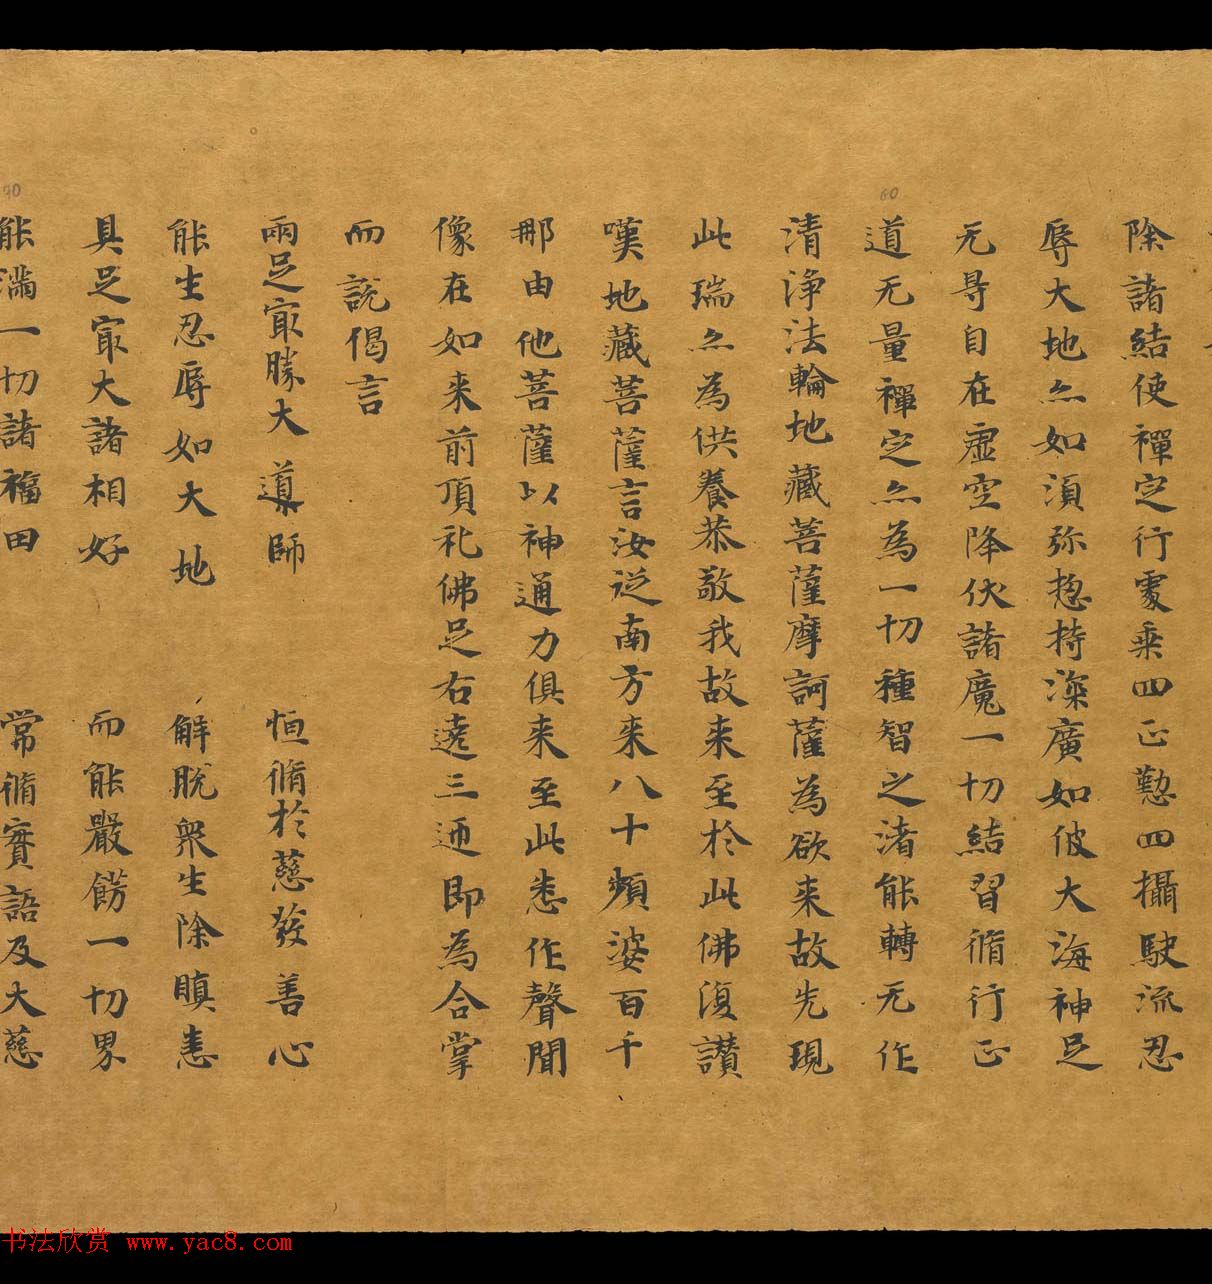 除諸結使禪定行處乘四正懃四攝駛流忍
辱大地亦如須弥揔持深廣如彼大海神足
无导自在虛空降伏諸魔一切結習脩行正
道无量禪定亦為一切種智之渚能轉无作
清淨法輪地藏菩薩摩訶薩為欲来故先現
此瑞亦為供養恭敬我故来至於此佛復讚
嘆地藏菩薩言汝從南方来八十頻婆百千
那由他菩薩以神通力俱来至此悉作聲聞
像在如来前頂礼佛足右遶三迊即為合掌
而說偈言
兩足冣勝大導師 恒脩於慈發善心
能生忍辱如大地 解脫衆生除瞋恚
具足冣大諸相好 而能嚴餝一切界
能滿一切諸福田 常脩實語及大慈
60
70
书法欣赏 www.yac8.com